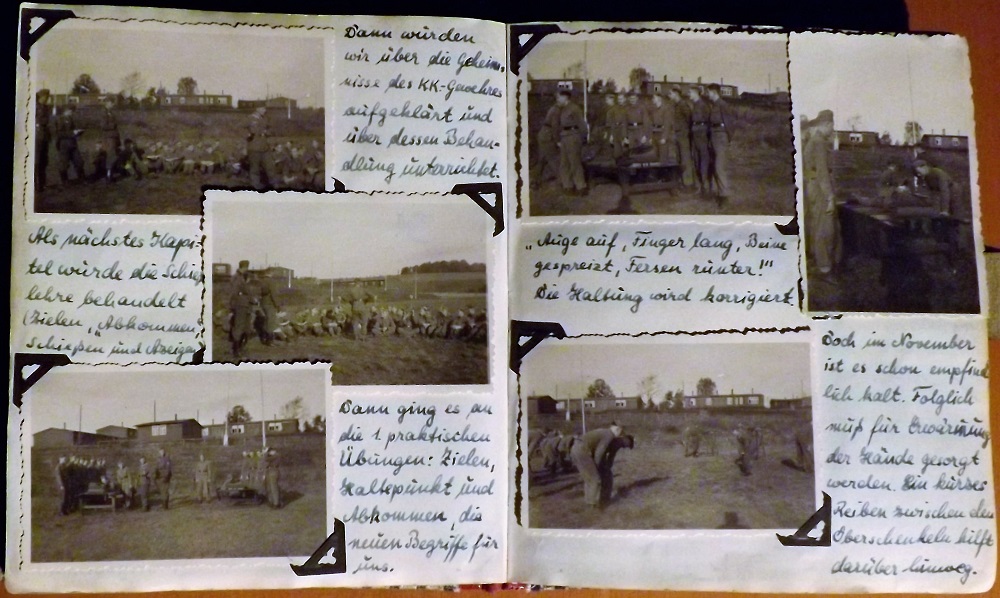 Dann wurden
wir über die Geheim-
nisse des KK-Gewehres
aufgeklärt und
über dessen Behan-
dlung unterrichtet.
Als nächstes Kapi-
tel wurde die Schieß-
lehre behandelt
(Zielen, „Abkommen",
Schießen und Anzeigen
Dann ging es an
die 1. praktischen
Übungen: Zielen,
Haltepunkt und
Abkommen, die
neuen Begriffe für
uns.
„Auge auf, Finger lang, Beine
gespreizt, Fersen runter!"
Die Haltung wird korrigiert.
Doch im November
ist es schon empfind
lich kalt. Folglich
muß für Erwärmung
der Hände gesorgt
werden. Ein kurzes
Reiben zwischen den
Oberschenkeln hilft
darüber hinweg.